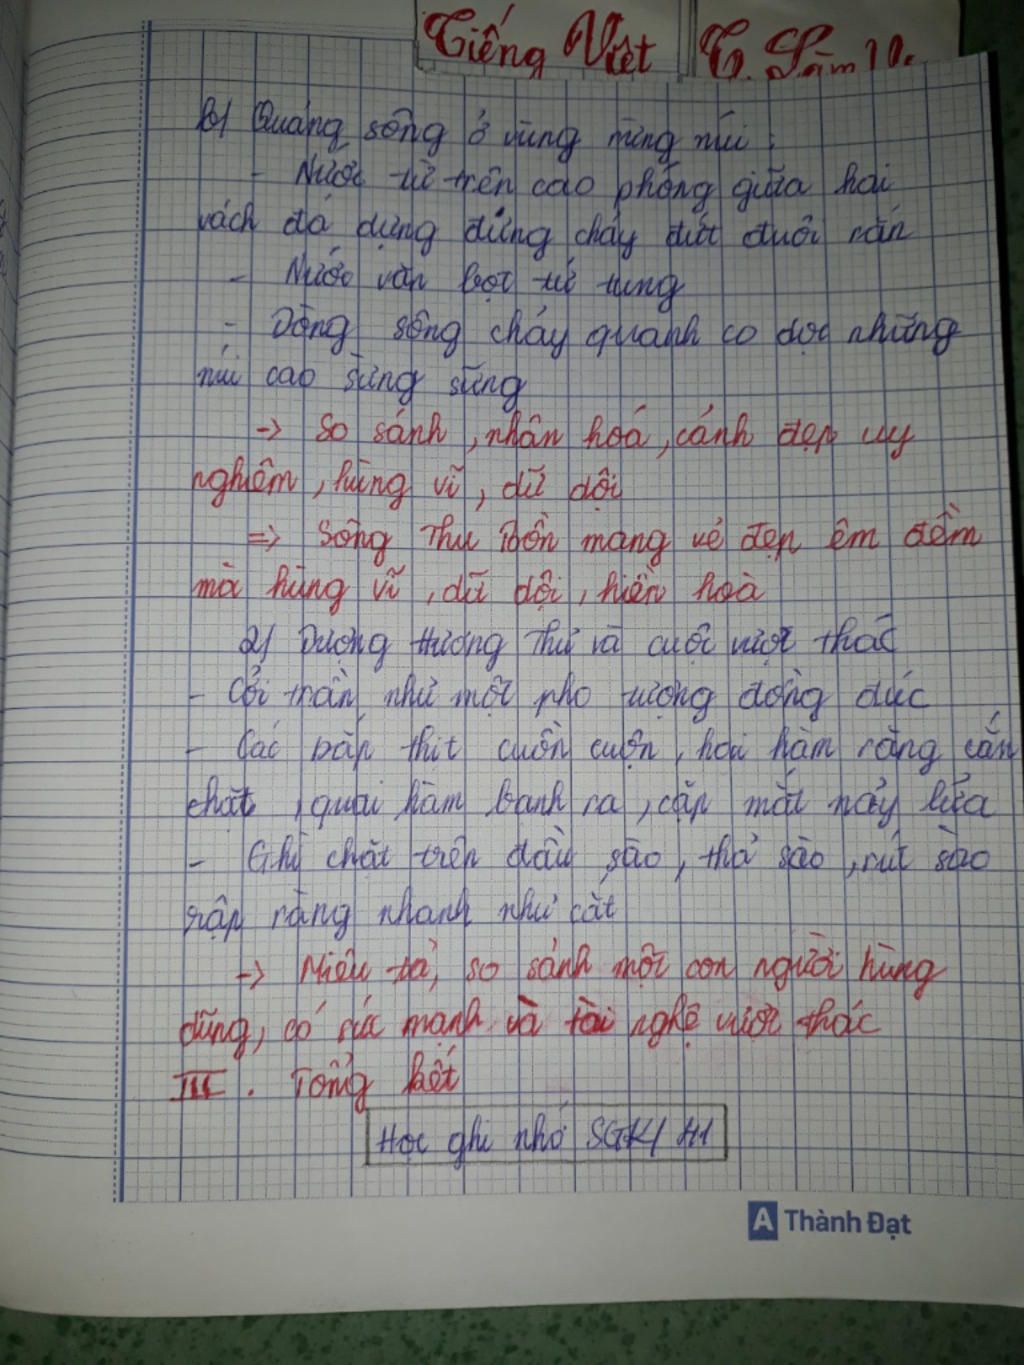 Tiếng Việt
b) Quãng sông ở vùng rừng núi :
- Nước từ trên cao phóng giữa hai
vách đá dựng đứng chảy đứt đuôi rắn
- Nước văn bọt tứ tung
- Dòng sông chảy quanh co dọc những
núi cao sừng sững
-> So sánh, nhân hoá, cảnh đẹp uy
nghiêm, hùng vĩ, dữ dội
=> Sông Thu Bồn mang vẻ đẹp êm đềm
mà hùng vĩ, dữ dội, hiền hoà
2) Dượng Hương Thư và cuộc vượt thác
- Cởi trần như một pho tượng đồng đúc
- Các bắp thịt cuồn cuộn, hai hàm răng cắn
chặt, quai hàm banh ra, cặp mắt nảy lửa
- Ghì chặt trên đầu sào, thả sào, rút sào
rập ràng nhanh như cắt
-> Miêu tả, so sánh một con người hùng
dũng, có sức mạnh và tài nghệ vượt thác
III. Tổng kết
Học ghi nhớ SGK/ 41
A Thành Đạt